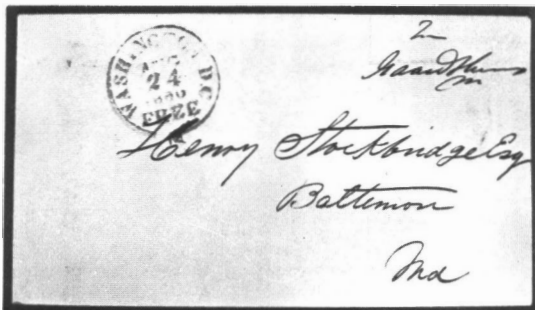 WASHINGTON D.C.
AUG
24
FREE
Henry Stockbridge Esq
Baltimore
Md